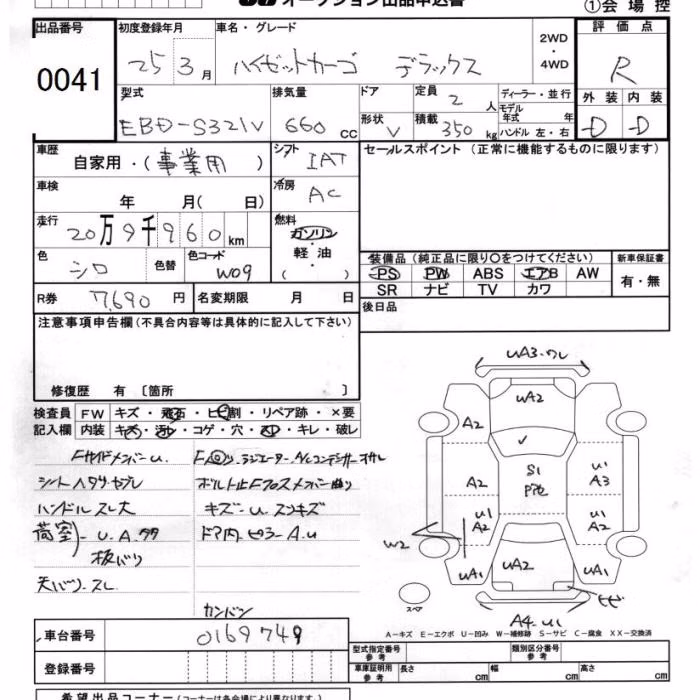 オークション出品申込書
①会場控
出品番号 0041
初度登録年月 25 3月
車名・グレード ハイゼットカーゴ デラックス
2WD・4WD
評価点 R
外装 D 内装 D
型式 EBD-S321V
排気量 660 cc
ドア
形状 V
定員 2 人
積載 350 kg
ディーラー・並行
モデル年式 年
ハンドル 左・右
車歴 自家用・(事業用)
シフト IAT
セールスポイント (正常に機能するものに限ります)
車検 年 月(日)
冷房 AC
走行 20万9千960km
燃料 ガソリン・軽油・( )
色 シロ 色替 色コード W09
装備品 (純正品に限り○をつけてください)
新車保証書
PS PW ABS エアB AW
有・無
SR ナビ TV カワ
R券 7,690円 名変期限 月 日
後日品
注意事項申告欄 (不具合内容等は具体的に記入して下さい)
修復歴 有 〔箇所 〕
検査員 FW キズ・飛石・ヒビ割・リペア跡・×要
記入欄 内装 キズ・汚レ・コゲ・穴・スレ・キレ・破レ
FサイドメンバーU.
シートヘタリ・ヤブレ
ハンドルスレ大
荷室
板バリ
天バリ・スレ
キズ-U スンキズ
カンバン
UA3・ワレ
UA2
A2
S1
A2
U1
A3
U1
A2
U1
A2
W2
UA1
UA2
UA1
ヒビ
スペア
A4-U1
A－キズ E－エクボ U－凹み W－補修跡 S－サビ C－腐食 XX－交換済
車台番号 0169749
型式指定番号 参考
類別区分番号 参考
登録番号
車庫証明用 参考 長さ cm 幅 cm 高さ cm
希望出品コーナー (コーナーは各会場により異なります)